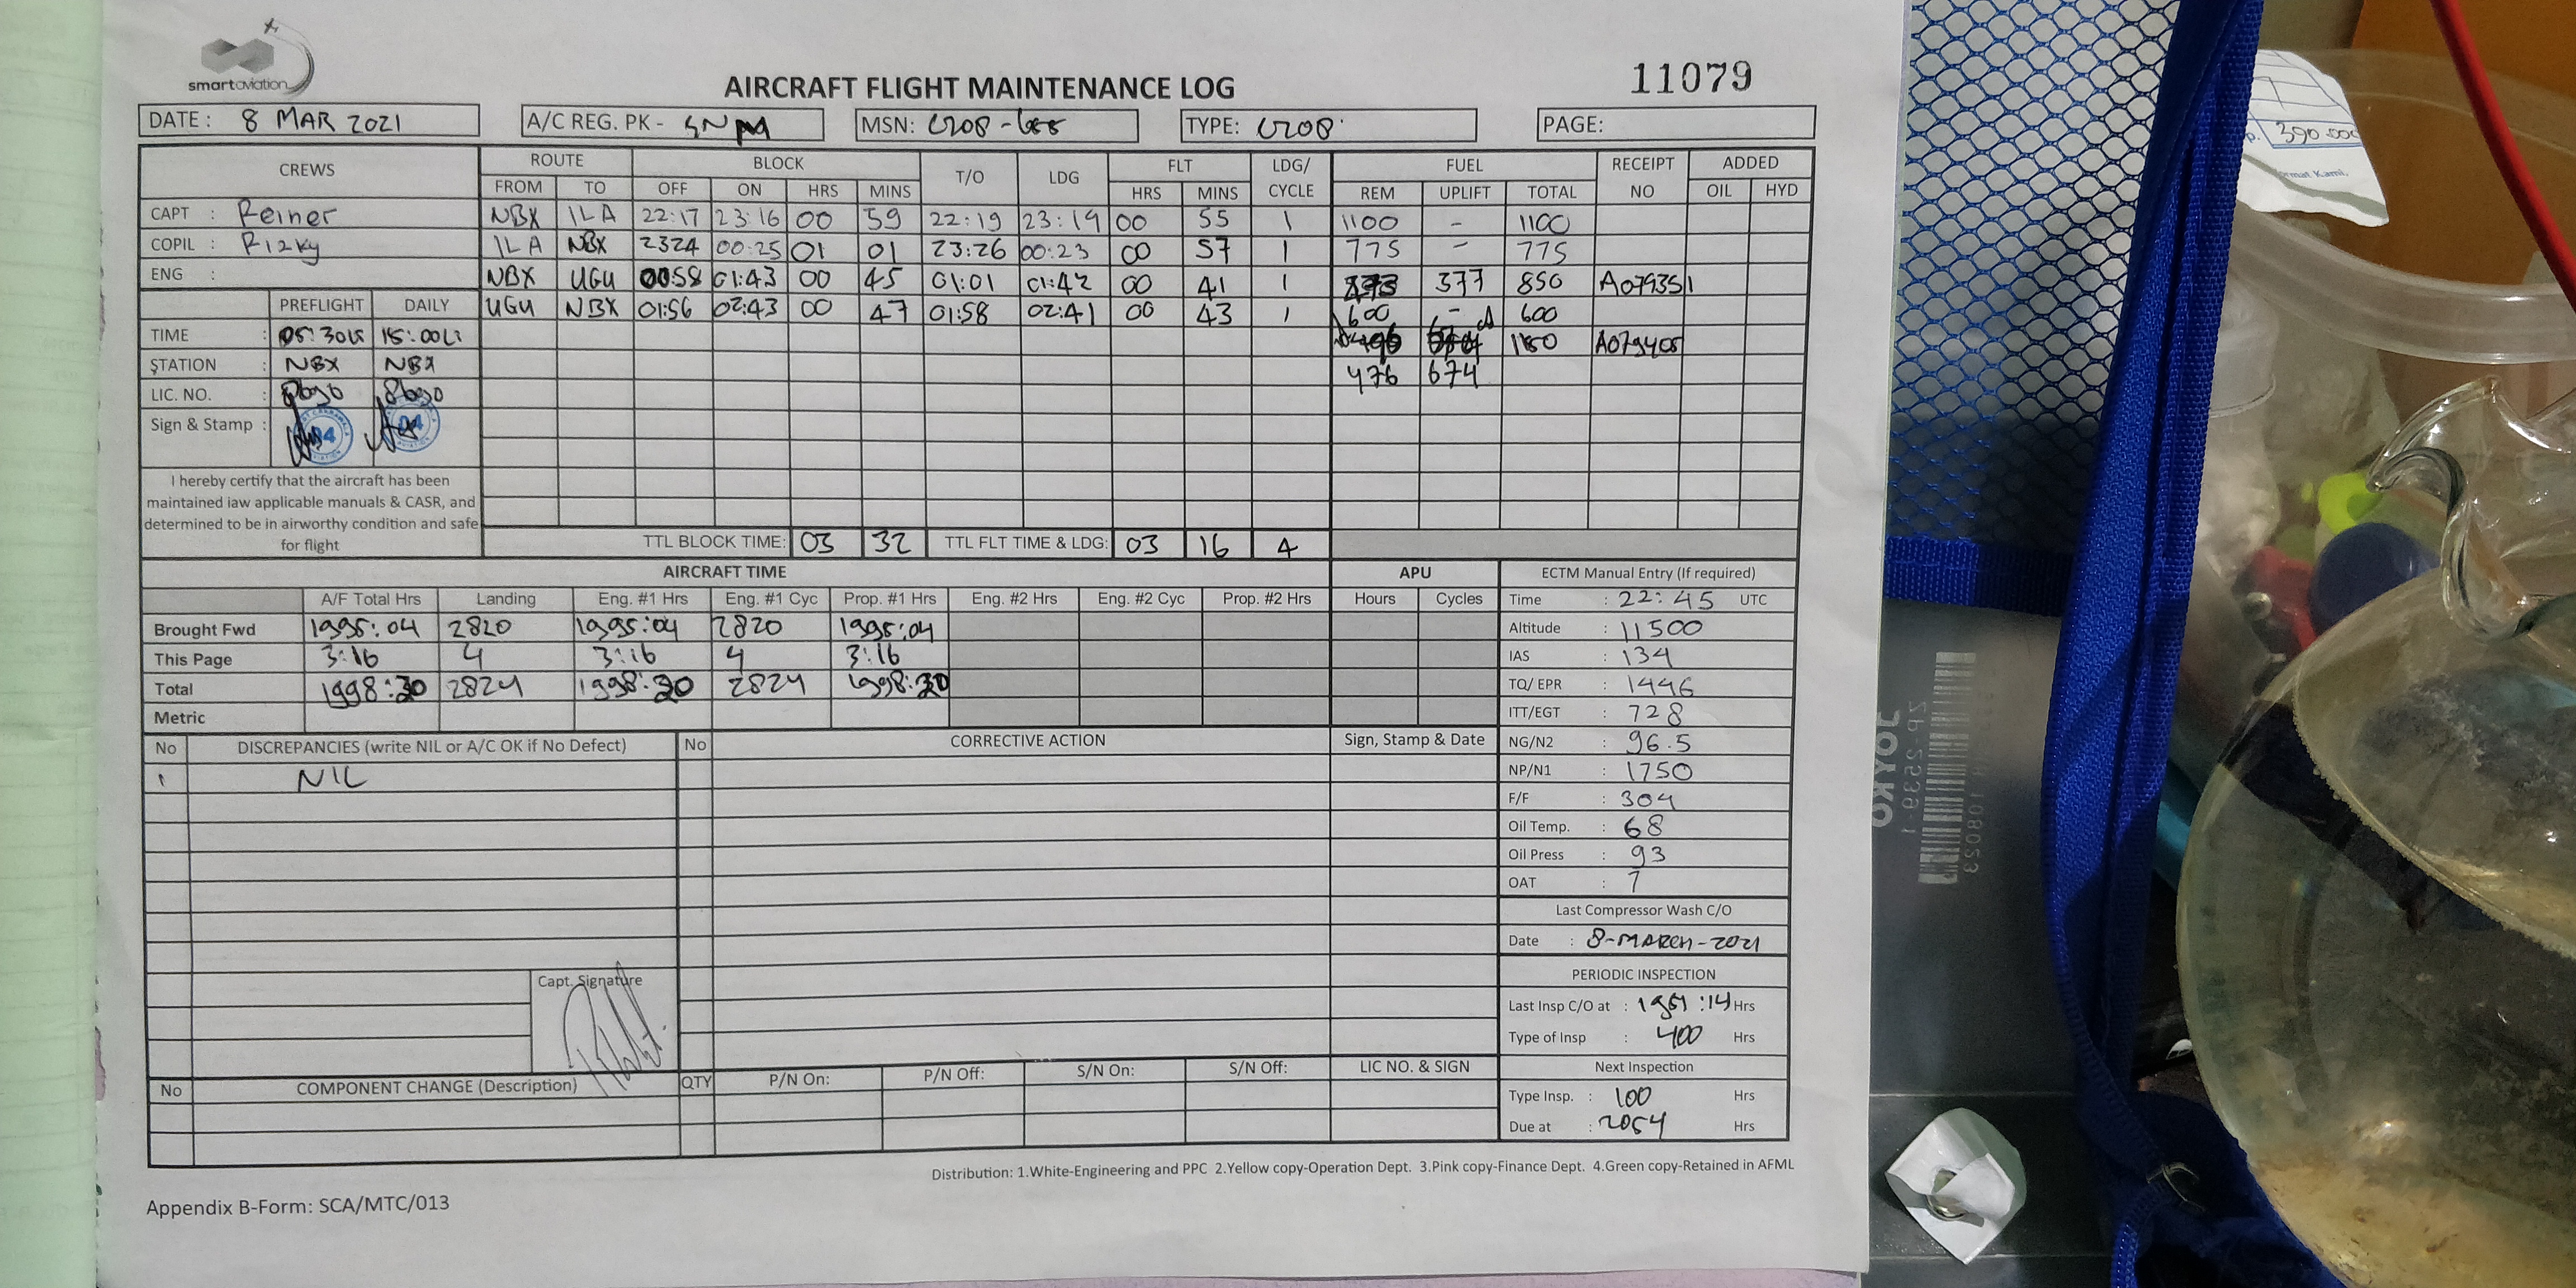 smartaviation
AIRCRAFT FLIGHT MAINTENANCE LOG
11079
DATE : 8 MAR 2021
A/C REG. PK - SNM
MSN: C208 -
TYPE: C208
PAGE:
CREWS ROUTE BLOCK T/O LDG FLT LDG/ CYCLE FUEL RECEIPT NO ADDED
FROM TO OFF ON HRS MINS HRS MINS REM UPLIFT TOTAL OIL HYD
CAPT : Reiner NBX ILA 22:17 23:16 00 59 22:19 23:14 00 55 1 1100 - 1100
COPIL : Rizky ILA NBX 2324 00:25 01 01 23:26 00:23 00 57 1 775 - 775
ENG : NBX UGU 00:58 01:43 00 45 01:01 01:42 00 41 1 377 850 A079351
PREFLIGHT DAILY UGU NBX 01:56 02:43 00 47 01:58 02:41 00 43 1 600 - 600
TIME : 05:30 15:00 1150 A079405
STATION : NBX NBX 476 674
LIC. NO. :
Sign & Stamp :
I hereby certify that the aircraft has been
maintained iaw applicable manuals & CASR, and
determined to be in airworthy condition and safe
for flight
TTL BLOCK TIME: 03 32 TTL FLT TIME & LDG: 03 16 4
AIRCRAFT TIME APU
A/F Total Hrs Landing Eng. #1 Hrs Eng. #1 Cyc Prop. #1 Hrs Eng. #2 Hrs Eng. #2 Cyc Prop. #2 Hrs Hours Cycles
Brought Fwd 1995:04 2820 1995:04 2820 1995:04
This Page 3:16 4 3:16 4 3:16
Total 1998:20 2824 1998:20 2824 1998:20
Metric
ECTM Manual Entry (If required)
Time : 22:45 UTC
Altitude : 11500
IAS : 134
TQ/ EPR : 1446
ITT/EGT : 728
NG/N2 : 96.5
NP/N1 : 1750
F/F : 304
Oil Temp. : 68
Oil Press : 93
OAT : 7
Last Compressor Wash C/O
Date : 8-MARCH-2021
PERIODIC INSPECTION
Last Insp C/O at : 1951:14 Hrs
Type of Insp : 400 Hrs
Next Inspection
Type Insp. : 100 Hrs
Due at : 2054 Hrs
No DISCREPANCIES (write NIL or A/C OK if No Defect) No CORRECTIVE ACTION Sign, Stamp & Date
1 NIL
Capt. Signature
No COMPONENT CHANGE (Description) QTY P/N On: P/N Off: S/N On: S/N Off: LIC NO. & SIGN
Distribution: 1.White-Engineering and PPC 2.Yellow copy-Operation Dept. 3.Pink copy-Finance Dept. 4.Green copy-Retained in AFML
Appendix B-Form: SCA/MTC/013
390.000
JOYKO
ZP 2539-1